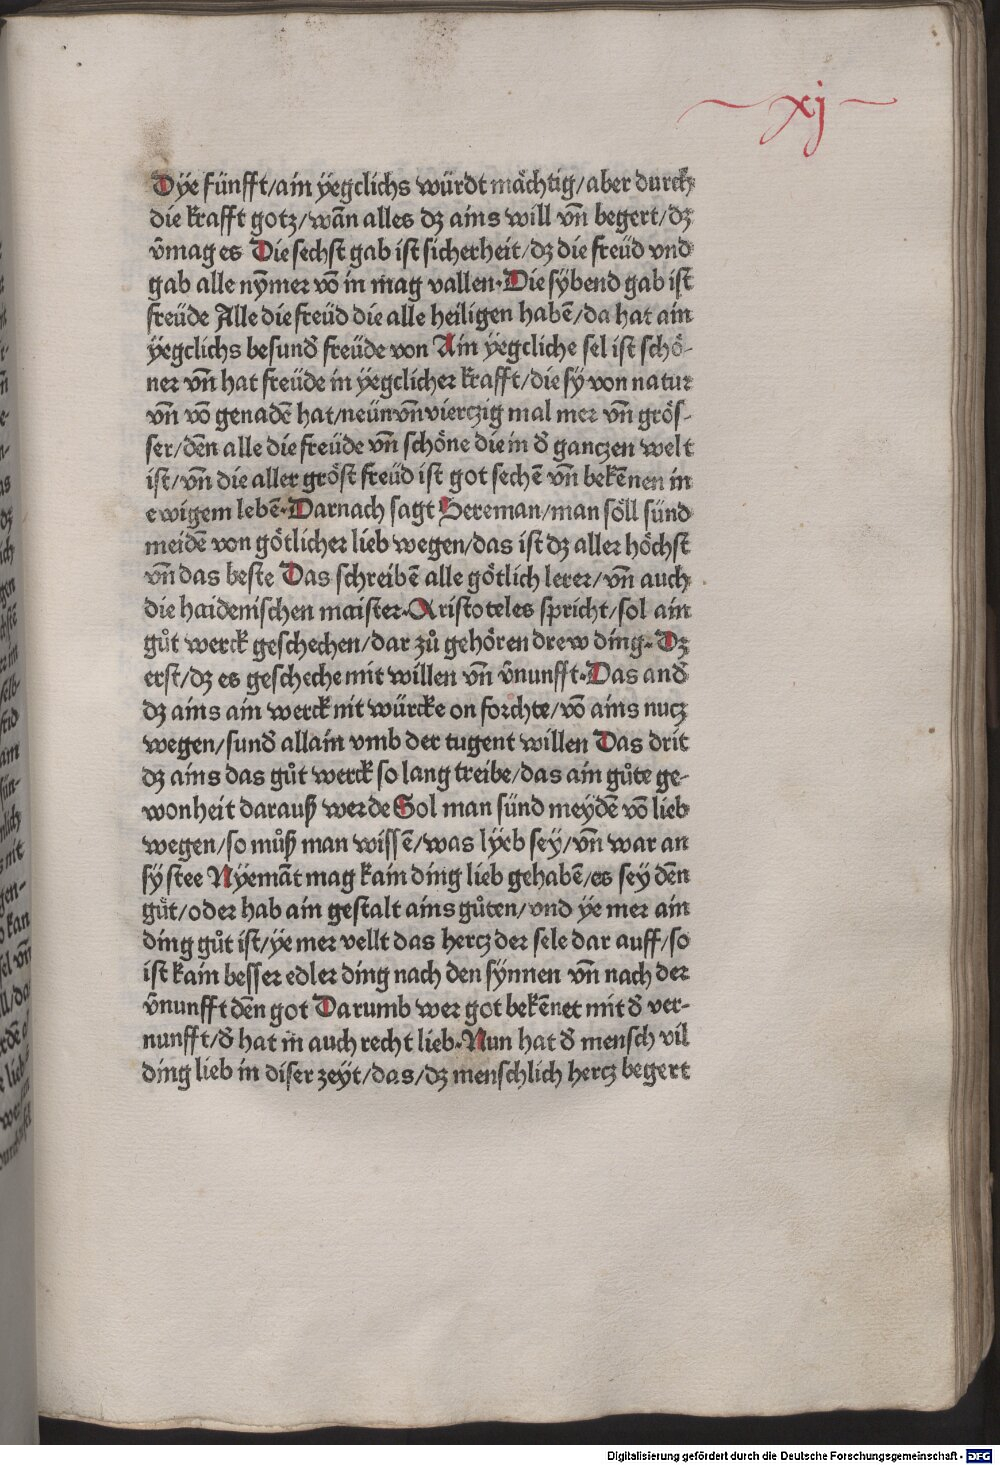 xj
Dye fünfft/ain ÿegclichs würdt mächtig/aber durch
die krafft gotz/wañ alles dz ains will vñ begert/dz
v̄mag es Die sechst gab ist sicherheit/dz die freüd vnd
gab alle nȳmer vō in mag vallen·Die sÿbend gab ist
freüde Alle die freüd die alle heiligen habē/da hat ain
ÿegclichs besund̄ freüde von Ain ÿegcliche sel ist schö-
ner vñ hat freüde in ÿegclicher krafft/die sÿ von natur
vñ vō genadē hat/neünvñvierczig mal mer vñ grös-
ser/dēn alle die freüde vñ schöne die in d̄ ganczen welt
ist/vñ die aller gröst freüd ist got sechē vñ bekēnen in
ewigem lebē·Darnach sagt Hereman/man söll sünd
meidē von götlicher lieb wegen/das ist dz aller höchst
vñ das beste Das schreibē alle götlich lerer/vñ auch
die haidenischen maister·Aristoteles spricht/sol ain
gůt werck geschechen/dar zů gehören drew ding·Dz
erst/dz es gescheche mit willen vñ v̄nunfft·Das and̄
dz ains ain werck nit würcke on forchte/vō ains nucz
wegen/sund̄ allain vmb der tugent willen Das drit
dz ains das gůt werck so lang treibe/das ain gůte ge-
wonheit darauß werde Sol man sünd meydē vō lieb
wegen/so můß man wissē/was lÿeb sey/vñ war an
sÿ stee Nÿemāt mag kain ding lieb gehabē/es sey dēn
gůt/oder hab ain gestalt ains gůten/vnd ÿe mer ain
ding gůt ist/ÿe mer vellt das hercz der sele dar auff/so
ist kain besser edler ding nach den sÿnnen vñ nach der
v̄nunfft dēn got Darumb wer got bekēnet mit d̄ ver-
nunfft/d̄ hat in auch recht lieb·Nun hat d̄ mensch vil
ding lieb in diser zeÿt/das/dz menschlich hercz begert
Digitalisierung gefördert durch die Deutsche Forschungsgemeinschaft - DFG